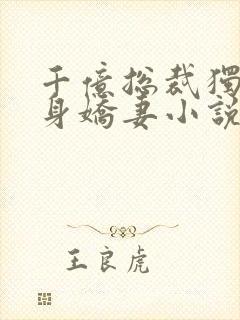 千億總裁獨
身嬌妻小說
王良虎